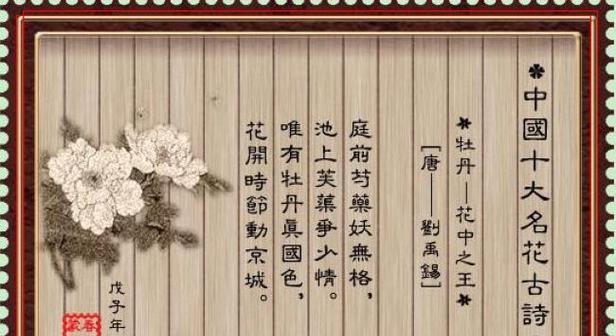 ✽中國十大名花古詩
*牡丹—花中之王*
[唐——劉禹錫]
庭前芍藥妖無格，
池上芙蕖爭少情。
唯有牡丹真國色，
花開時節動京城。
戊子年